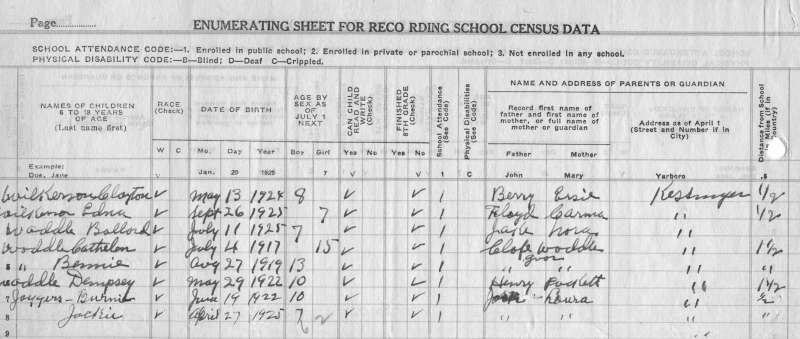 Page
ENUMERATING SHEET FOR RECO RDING SCHOOL CENSUS DATA
SCHOOL ATTENDANCE CODE:—1. Enrolled in public school; 2. Enrolled in private or parochial school; 3. Not enrolled in any school.
PHYSICAL DISABILITY CODE:—B—Blind; D—Deaf C—Crippled.
NAMES OF CHILDREN 6 TO 18 YEARS OF AGE (Last name first)
RACE (Check)
W C
DATE OF BIRTH
Mo. Day Year
AGE BY SEX AS OF JULY 1 NEXT
Boy Girl
CAN CHILD READ AND WRITE (Check)
Yes No
FINISHED 8TH GRADE (Check)
Yes No
School Attendance (See Code)
Physical Disabilities (See Code)
NAME AND ADDRESS OF PARENTS OR GUARDIAN
Record first name of father and first name of mother, or full name of mother or guardian
Father Mary
Address as of April 1 (Street and Number if in City)
Distance from School in Miles (if in Country)
Example:
Doe, Jane V Jan. 20 1925 7 V V 1 C John Mary Yarboro .5
Wilkerson Clayton V May 13 1924 8 V V 1 Berry 1/2
Wilkerson Edna V Sept 26 1925 7 V V 1 Floyd Carma " 1/2
Waddle Ballord V July 11 1925 7 V V 1 Nora "
Woddle Cathelen V July 4 1917 15 V V 1 Woddle " 1 1/2
5 " Bennie V Aug 27 1919 13 V V 1 " " " "
Woddle Dempsey V May 29 1922 10 V V 1 Henry Puckett " 1 1/2
7 Burnie V June 19 1922 10 V V 1 Laura "
8 Jackie V April 27 1925 7 V V 1 " " "
9